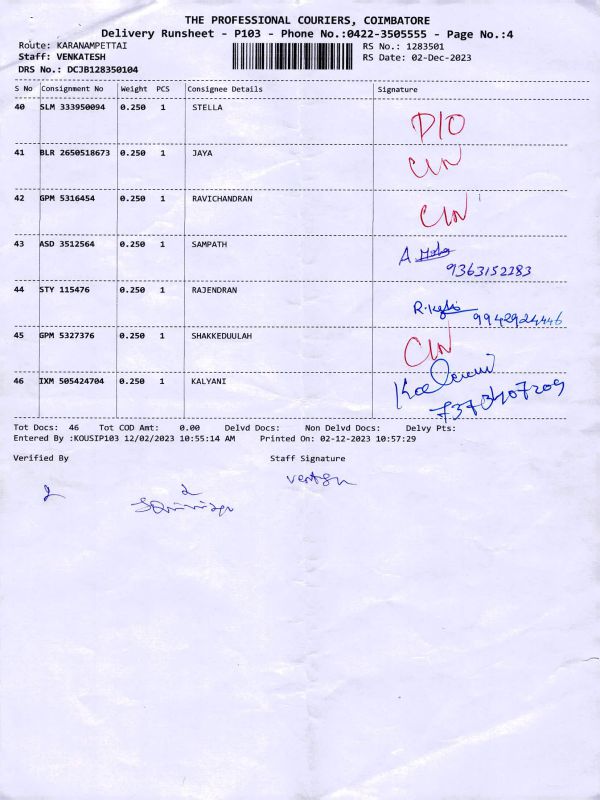 THE PROFESSIONAL COURIERS, COIMBATORE
Delivery Runsheet - P103 - Phone No.:0422-3505555 - Page No.:4
Route: KARANAMPETTAI RS No.: 1283501
Staff: VENKATESH RS Date: 02-Dec-2023
DRS No.: DCJB128350104
S No Consignment No Weight PCS Consignee Details Signature
40 SLM 333950094 0.250 1 STELLA
D/O
41 BLR 2650518673 0.250 1 JAYA
C/N
42 GPM 5316454 0.250 1 RAVICHANDRAN
C/N
43 ASD 3512564 0.250 1 SAMPATH
A
9363152283
44 STY 115476 0.250 1 RAJENDRAN
9942924446
45 GPM 5327376 0.250 1 SHAKKEDUULAH
C/N
46 IXM 505424704 0.250 1 KALYANI
Tot Docs: 46 Tot COD Amt: 0.00 Delvd Docs: Non Delvd Docs: Delvy Pts:
Entered By :KOUSIP103 12/02/2023 10:55:14 AM Printed On: 02-12-2023 10:57:29
Verified By Staff Signature